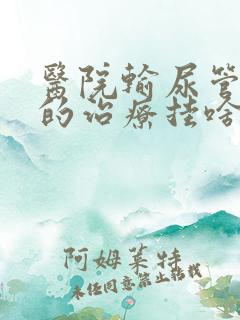 醫院輸尿管
的治療挂啥
阿姆萊特
未经同意禁止转载